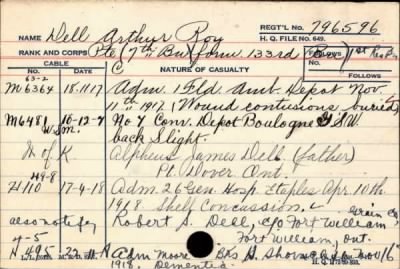 NAME Dell Arthur Roy REGT'L NO. 796596
H. Q. FILE NO. 649.
RANK AND CORPS Pte (7th Bn) form 133rd Bn 1st Res Bn
FOLLOWS
CABLE NATURE OF CASUALTY
NO. DATE FOLLOWS
63-2 C
M6364 18.11.17 Adm. 1 Fld. Amb. Depot Nov.
11th 1917. (Wound contusions buried)
M6481 10-12-7 No 7 Conv. Depot Boulogne GSW
W.S.M. back Slight.
N of K. Alpheus James Dell (father)
49-8 Pt Dover Ont.
21/10 17-4-18 Adm. 26 Gen. Hosp. Etaples Apr. 10th
1918. Shell Concussion.
also notify Robert S. Dell, c/o Fort William Grain Co
4-5 Fort William, Ont.
N495 22 Adm Moore Bks Shorncliffe Nov 16th
1918. Dementia